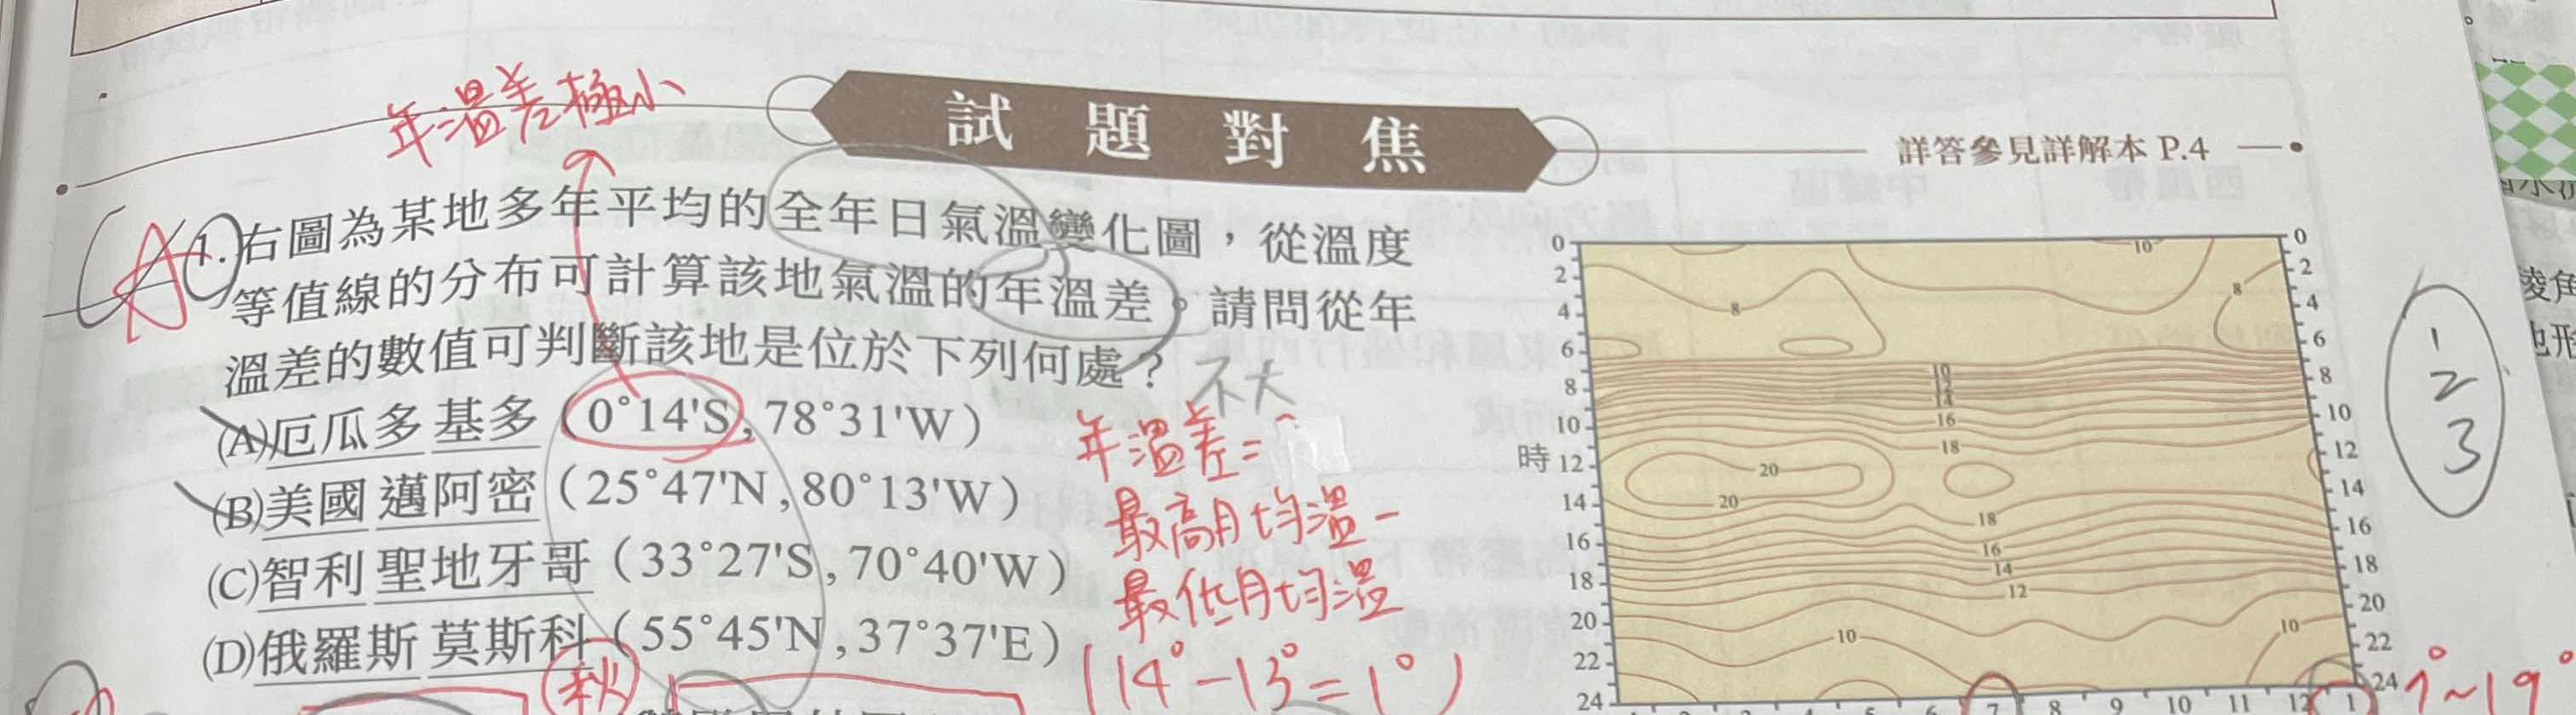 年溫差極小
試題對焦
詳答參見詳解本 P.4
A
1.右圖為某地多年平均的全年日氣溫變化圖，從溫度
等值線的分布可計算該地氣溫的年溫差。請問從年
溫差的數值可判斷該地是位於下列何處？
不大
(A)厄瓜多基多（0°14'S, 78°31'W）
(B)美國邁阿密（25°47'N, 80°13'W）
(C)智利聖地牙哥（33°27'S, 70°40'W）
(D)俄羅斯莫斯科（55°45'N, 37°37'E）
年溫差=
最高月均溫-
最低月均溫
(14°-13°=1°)
秋
0 2 4 6 8 10 12 14 16 18 20 22 24
時
10
8
8
10
12
14
16
18
20
20
18
16
14
12
10
10
0 2 4 6 8 10 12 14 16 18 20 22 24
6 7 8 9 10 11 12 1
1
2
3
7°~19°